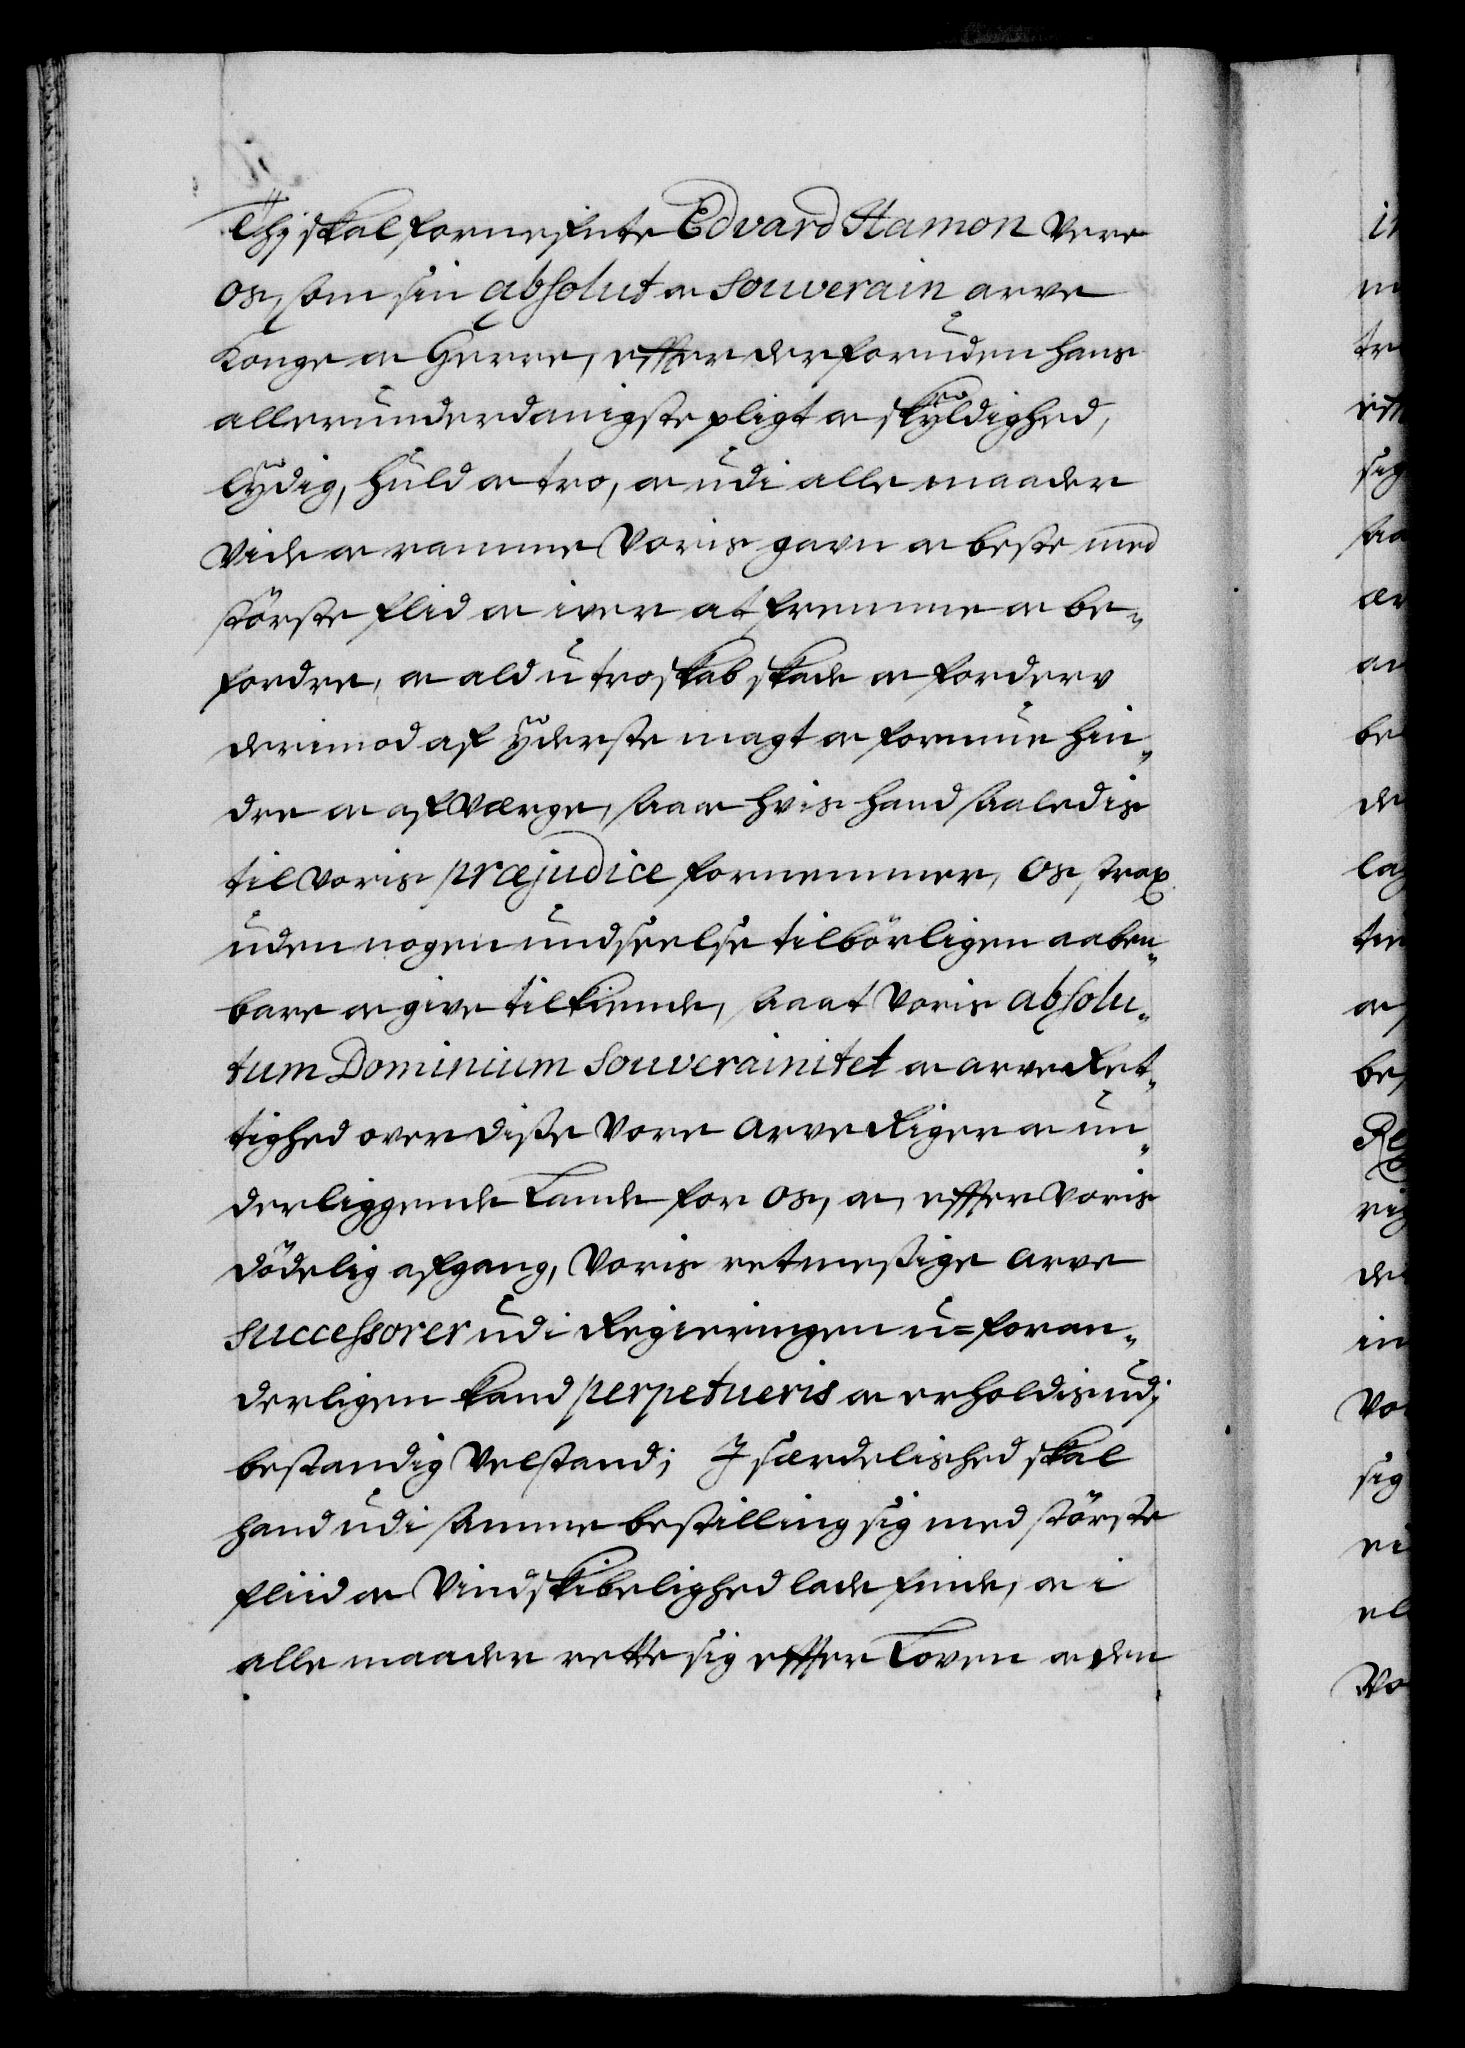 Thj skal fornefnte Edvard Hamon vere
os, som sin absolut oc souverain arve
Konge oc Herre, effter der foruden hans
allerunderdanigste pligt oc skyldighed,
lydig, huld oc tro, oc udi alle maader
vide oc ramme Voris gavn oc beste med
störste flid oc iver at fremme oc be-
fordre, oc ald utroskab skade oc forderv
derimod af yderste magt oc formue hin-
dre oc afværge, saa oc hvis hand saaledis
til voris præjudice fornemmer, os, strax
uden nogen undseelse tilbörligen aaben-
bare oc give tilkiende, saa at Voris absolu-
tum Dominium souverainitet oc arve Ret-
tighed over disse Vore arve Riger oc un-
derliggende Lande for os, oc, effter Voris
dödelig afgang, Voris retmessige arve
successorer udi Regieringen u=foran-
derligen kand perpetueris oc erholdis udj
bestandig Velstand; I særdelished skal
hand udi samme bestilling sig med störste
fliid oc Vindskibelighed lade finde, oc i
alle maader rette sig effter Loven oc den